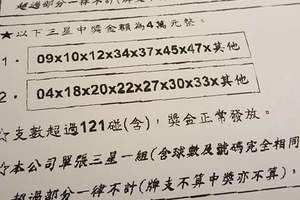 超過部分一律不計(牌支
★以下三星中獎金額為4萬元整。
1· 09x10x12x34x37x45x47x其他
2· 04x18x20x22x27x30x33x其他
☆支數超過121碰(含)，獎金正常發放。
☆本公司單張三星一組(含球數及號碼完全相同
超過部分一律不計(牌支不算中獎亦不算)，